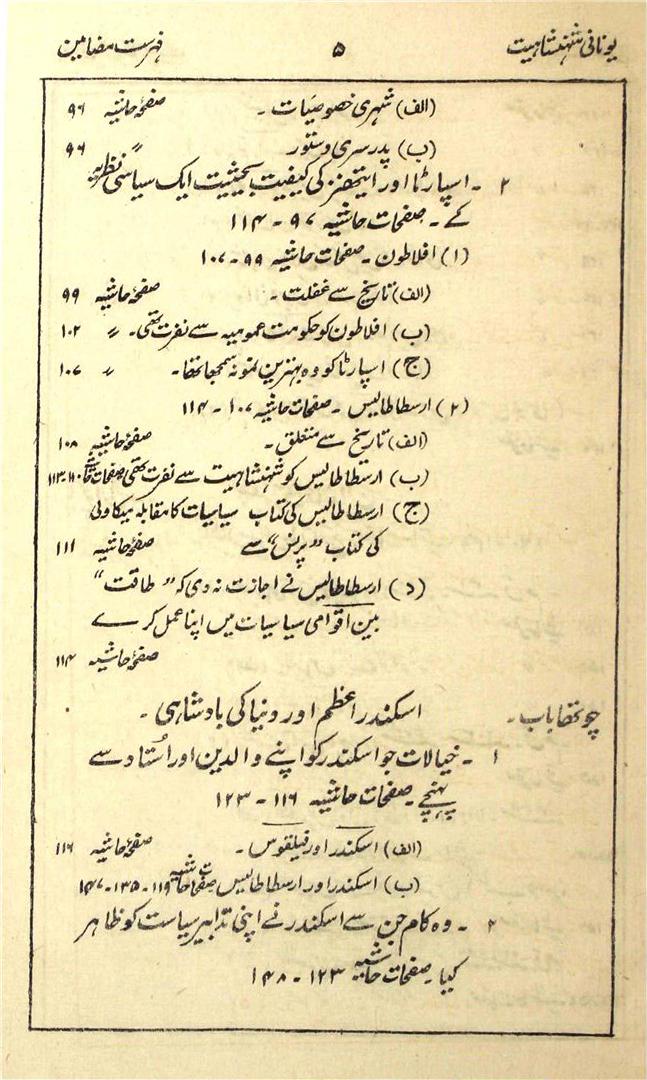 یونانی شہنشاہیت ۵ فہرست مضامین
(الف) شہری خصوصیات ۔ صفحۂ حاشیہ ۹۶
(ب) پدرسری دستور " ۹۶
۲ ۔ اسپارٹا اور ایتھنز کی کیفیت بحیثیت ایک سیاسی نظریہ
کے ۔ صفحات حاشیہ ۹۷ - ۱۱۴
(۱) افلاطون ۔ صفحات حاشیہ ۹۹ - ۱۰۷
(الف) تاریخ سے غفلت ۔ صفحۂ حاشیہ ۹۹
(ب) افلاطون کو حکومت عمومیہ سے نفرت تھی ۔ " ۱۰۲
(ج) اسپارٹا کو وہ بہترین نمونہ سمجھا تھا ۔ " ۱۰۷
(۲) ارسطاطالیس ۔ صفحات حاشیہ ۱۰۷ - ۱۱۴
(الف) تاریخ سے متعلق ۔ صفحۂ حاشیہ ۱۰۸
(ب) ارسطاطالیس کو شہنشاہیت سے نفرت تھی صفحات حاشیہ ۱۱۰ - ۱۱۳
(ج) ارسطاطالیس کی کتاب سیاسیات کا مقابلہ میکاولی
کی کتاب "پرنس" سے صفحۂ حاشیہ ۱۱۱
(د) ارسطاطالیس نے اجازت نہ دی کہ "طاقت"
بین اقوامی سیاسیات میں اپنا عمل کرے
صفحۂ حاشیہ ۱۱۴
چوتھا باب ۔ اسکندر اعظم اور دنیا کی بادشاہی ۔
۱ ۔ خیالات جو اسکندر کو اپنے والدین اور اُستاد سے
پہنچے ۔ صفحات حاشیہ ۱۱۶ - ۱۲۳
(الف) اسکندر اور فیلقوس ۔ صفحۂ حاشیہ ۱۱۶
(ب) اسکندر اور ارسطاطالیس صفحات حاشیہ ۱۱۹ - ۱۳۵ - ۱۴۷
۲ ۔ وہ کام جن سے اسکندر نے اپنی تدابیر سیاست کو ظاہر
کیا ۔ صفحات حاشیہ ۱۲۳ - ۱۴۸